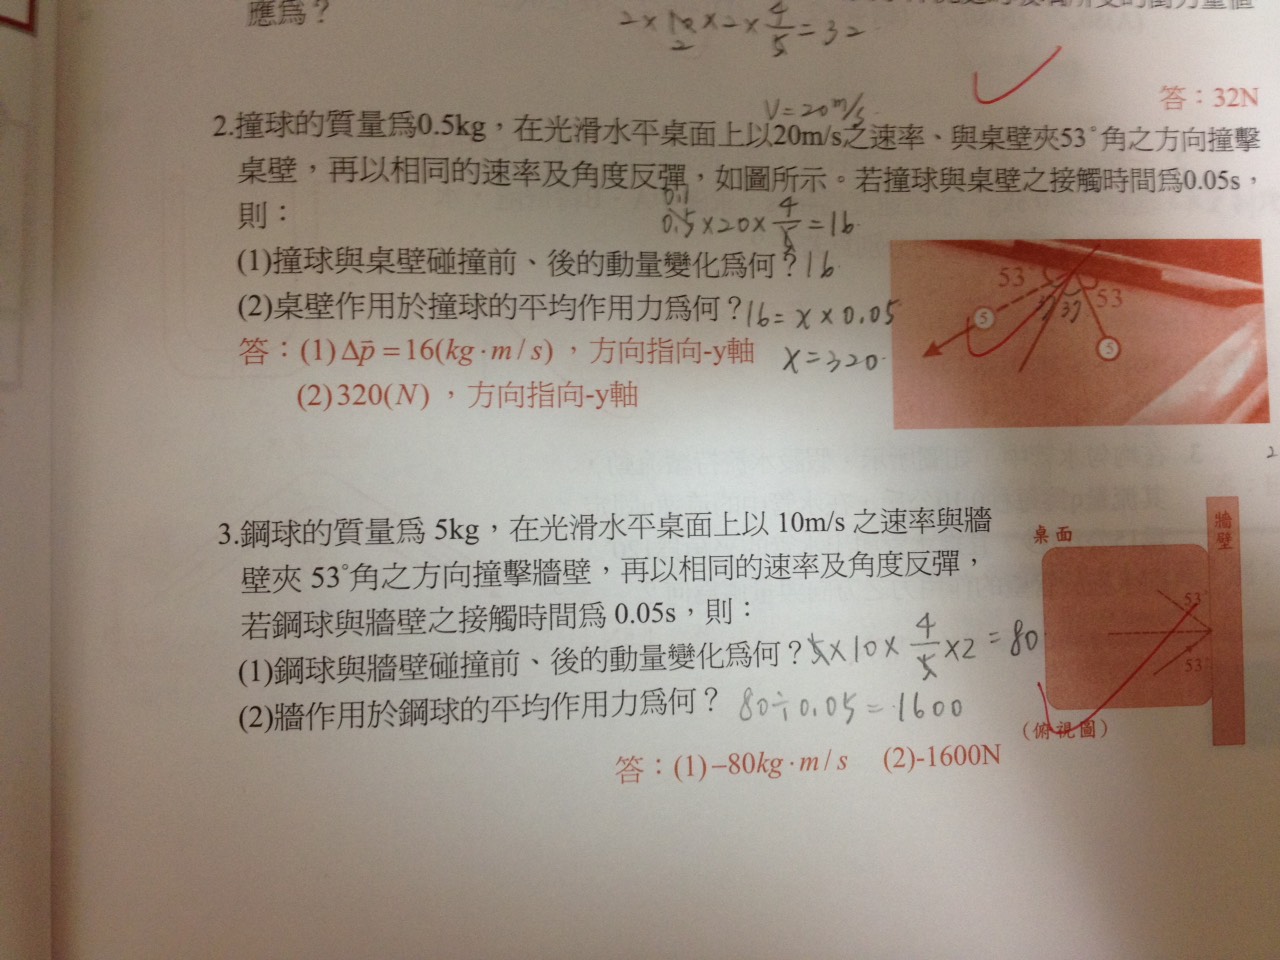 應為？
2×10×2×4/5=32
答：32N
V=20m/s
2.撞球的質量為0.5kg，在光滑水平桌面上以20m/s之速率、與桌壁夾53°角之方向撞擊
桌壁，再以相同的速率及角度反彈，如圖所示。若撞球與桌壁之接觸時間為0.05s，
則：
0.1
0.5×20×4/5=16
(1)撞球與桌壁碰撞前、後的動量變化為何？16
(2)桌壁作用於撞球的平均作用力為何？16=x×0.05
x=320
答：(1)Δp̄=16(kg·m/s)，方向指向-y軸
(2)320(N)，方向指向-y軸
53
53
37
5
5
3.鋼球的質量為 5kg，在光滑水平桌面上以 10m/s 之速率與牆
壁夾 53°角之方向撞擊牆壁，再以相同的速率及角度反彈，
若鋼球與牆壁之接觸時間為 0.05s，則：
(1)鋼球與牆壁碰撞前、後的動量變化為何？5×10×4/5×2=80
(2)牆作用於鋼球的平均作用力為何？80÷0.05=1600
桌面
牆壁
53°
53°
(俯視圖)
答：(1)–80kg·m/s (2)-1600N